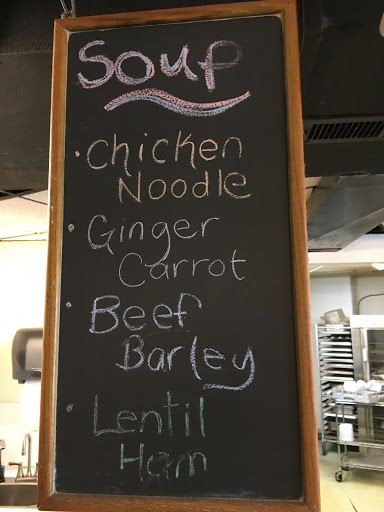 Soup
• Chicken
Noodle
• Ginger
Carrot
• Beef
Barley
• Lentil
Ham